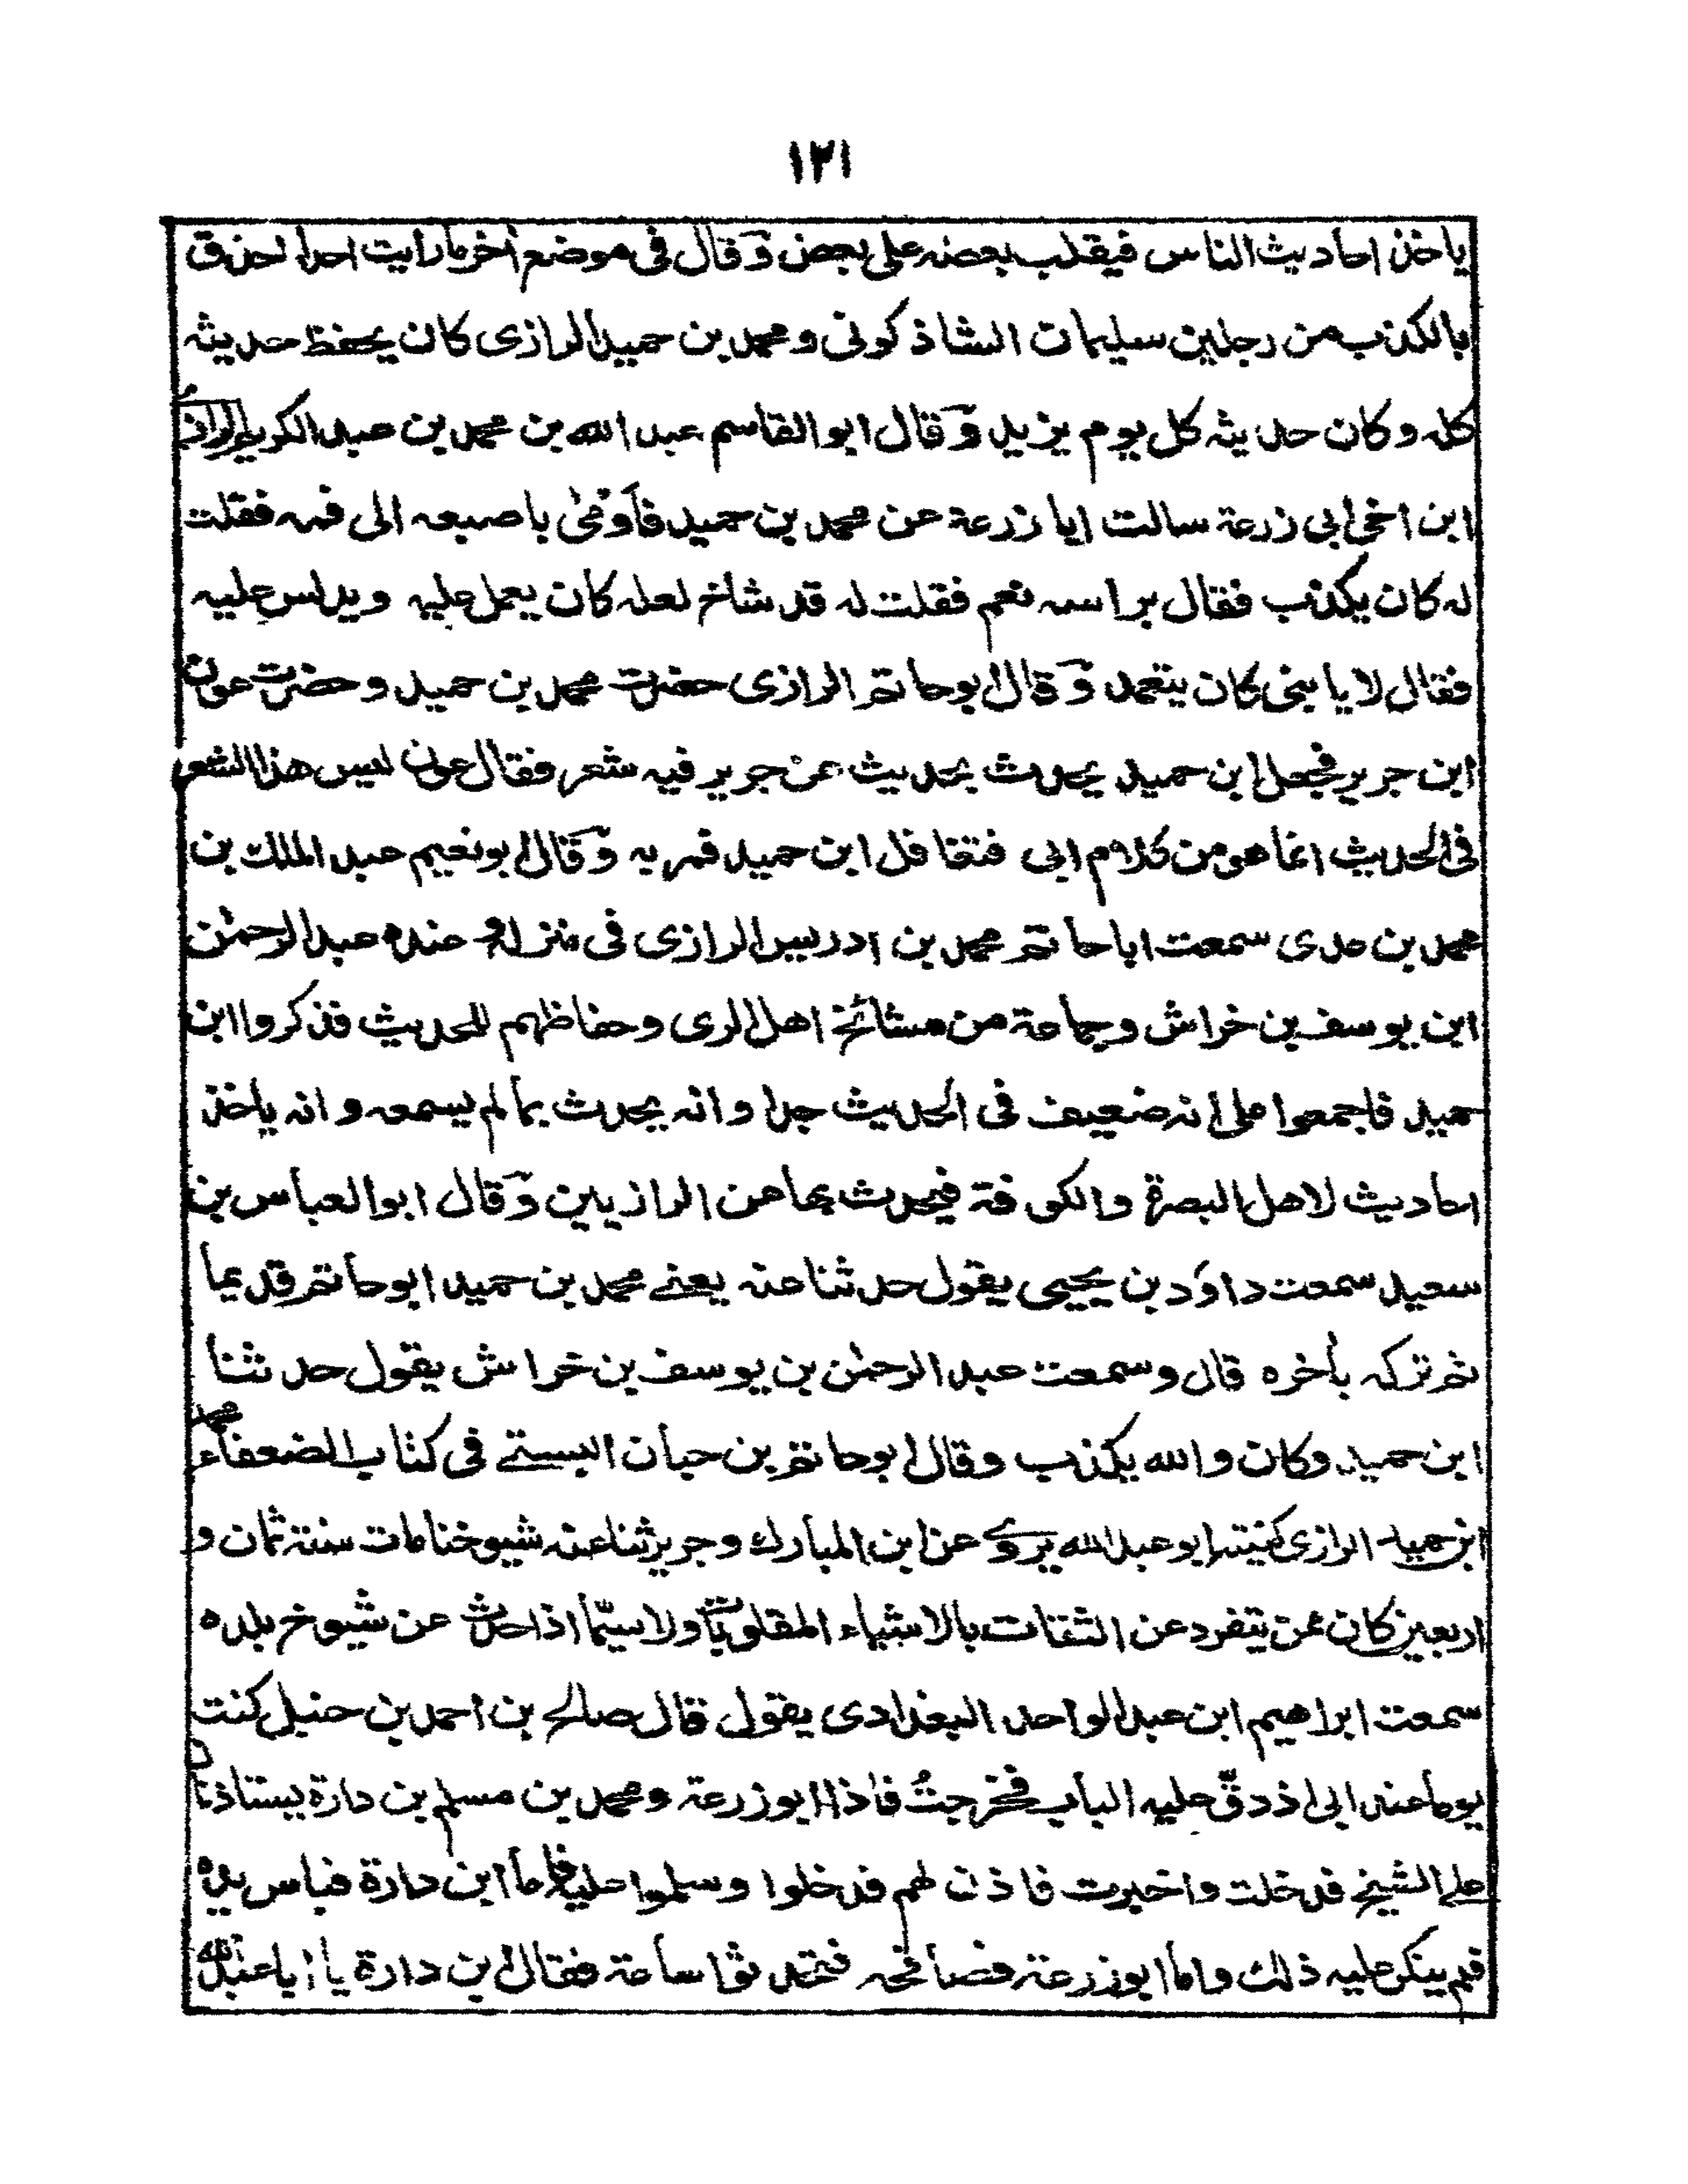 ١٢١
ياخذ احاديث الناس فيقلب بعضه على بعض وقال فى موضع آخر ما رايت احدا احذق
بالكذب من رجلين سليمان الشاذ كونى ومحمد بن حميد الرازى كان يحفظ حديثه
كله وكان حديثه كل يوم يزيد وقال ابو القاسم عبد الله بن محمد بن عبد الكريم الرازى
ابن اخى ابى زرعة سالت ابا زرعة عن محمد بن حميد فاومٰى باصبعه الى فمه فقلت
له كان يكذب فقال براسه نعم فقلت له قد شاخ لعله كان يعمل عليه ويدلس عليه
فقال لا يا بنى كان يتعمد وقال ابو حاتم الرازى حضرت محمد بن حميد وحضرت عون
ابن جرير فجعل ابن حميد يحدث بحديث عن جرير فيه شعر فقال عون ليس هذا الشعر
فى الحديث انما هو من كلام ابى فتغافل ابن حميد فمر به وقال ابو نعيم عبد الملك بن
محمد بن عدى سمعت ابا حاتم محمد بن ادريس الرازى فى منزله وعنده عبد الرحمٰن
ابن يوسف بن خراش وجماعة من مشائخ اهل الرى وحفاظهم للحديث فذكروا ابن
حميد فاجمعوا على انه ضعيف فى الحديث جدا وانه يحدث بما لم يسمعه وانه ياخذ
احاديث لاهل البصرة والكوفة فيحدث بها عن الرازيين وقال ابو العباس بن
سعيد سمعت داؤد بن يحيى يقول حدثنا عنه يعنے محمد بن حميد ابو حاتم قديما
ثم تركه بأخره قال وسمعت عبد الرحمٰن بن يوسف بن خراش يقول حدثنا
ابن حميد وكان والله يكذب وقال ابو حاتم بن حبان البستے فى كتاب الضعفاء محمد
ابن حميد الرازى كنيته ابو عبد الله يروے عن ابن المبارك وجرير ثنا عنه شيوخنا مات سنة ثمان و
اربعين كان ممن يتفرد عن الثقات بالاشياء المقلوبات ولا سيّما اذا حدث عن شيوخ بلده
سمعت ابراهيم ابن عبد الواحد البغدادى يقول قال صالح بن احمد بن حنبل كنت
يوما عند ابى اذ دقّ عليه الباب فخرجتُ فاذا ابو زرعة ومحمد بن مسلم بن دارة يستاذنان
علے الشيخ فدخلت واخبرت فاذن لهم فدخلوا وسلموا عليه فاما ابن دارة فباس يده
فلم ينكر عليه ذلك واما ابو زرعة فصافحه فتحدثوا ساعة فقال ابن دارة يا ابا عبد الله